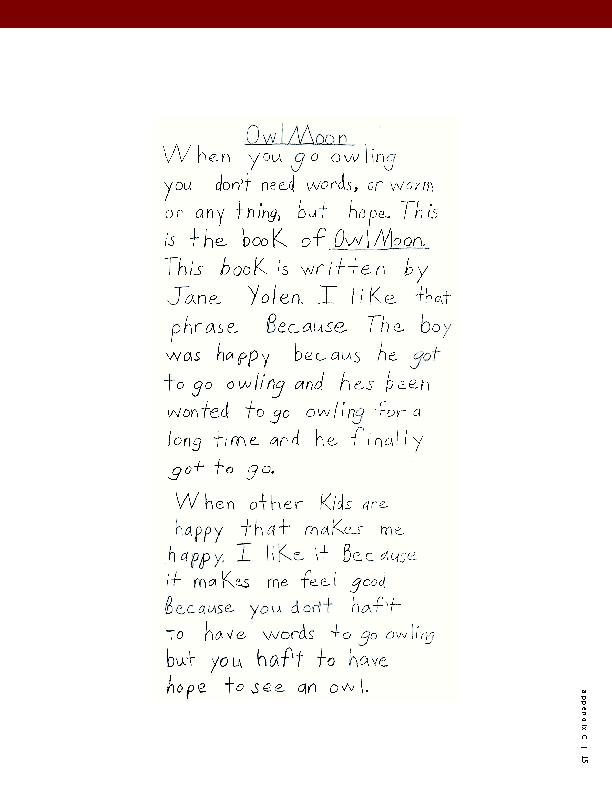 Owl Moon
When you go owling
you don't need words, or worm
or any tning, but hope. This
is the book of Owl Moon.
This book is written by
Jane Yolen. I like that
phrase Because The boy
was happy becaus he got
to go owling and hes been
wonted to go owling for a
long time and he finally
got to go.
When other Kids are
happy that makes me
happy. I like it Because
it makes me feel good
Because you don't haf't
to have words to go owling
but you haf't to have
hope to see an owl.
appendix C | 15